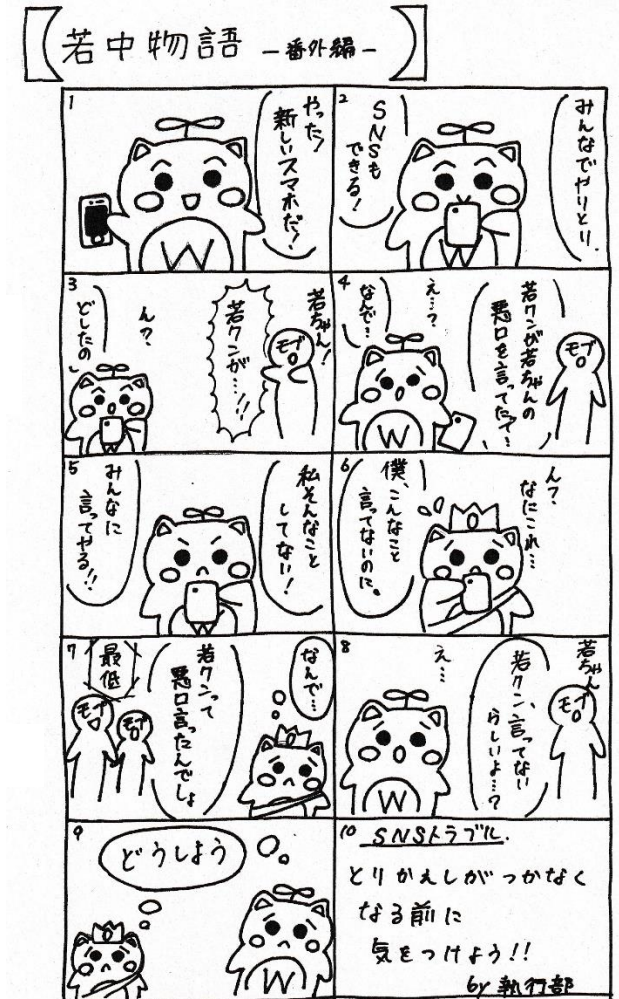 若中物語 －番外編－
1
やった!
新しいスマホだ!
W
2
みんなでやりとり
SNSも
できる!
3
若ちゃん!
モブ
若クンが…!!
ん?
どしたの
4
モブ
若クンが若ちゃんの
悪口を言ってたって!
え…?
なんで…
W
5
私そんなこと
してない!
みんなに
言ってやる!!
6
ん?
なにこれ…
僕、こんなこと
言ってないのに。
7
なんで…
若クンって
悪口言ったんでしょ
最低
モブ
モブ
8
若ちゃん
モブ
若クン、言ってない
らしいよ…?
え…
W
9
どうしよう
10
SNSトラブル.
とりかえしがつかなく
なる前に
気をつけよう!!
by 執行部